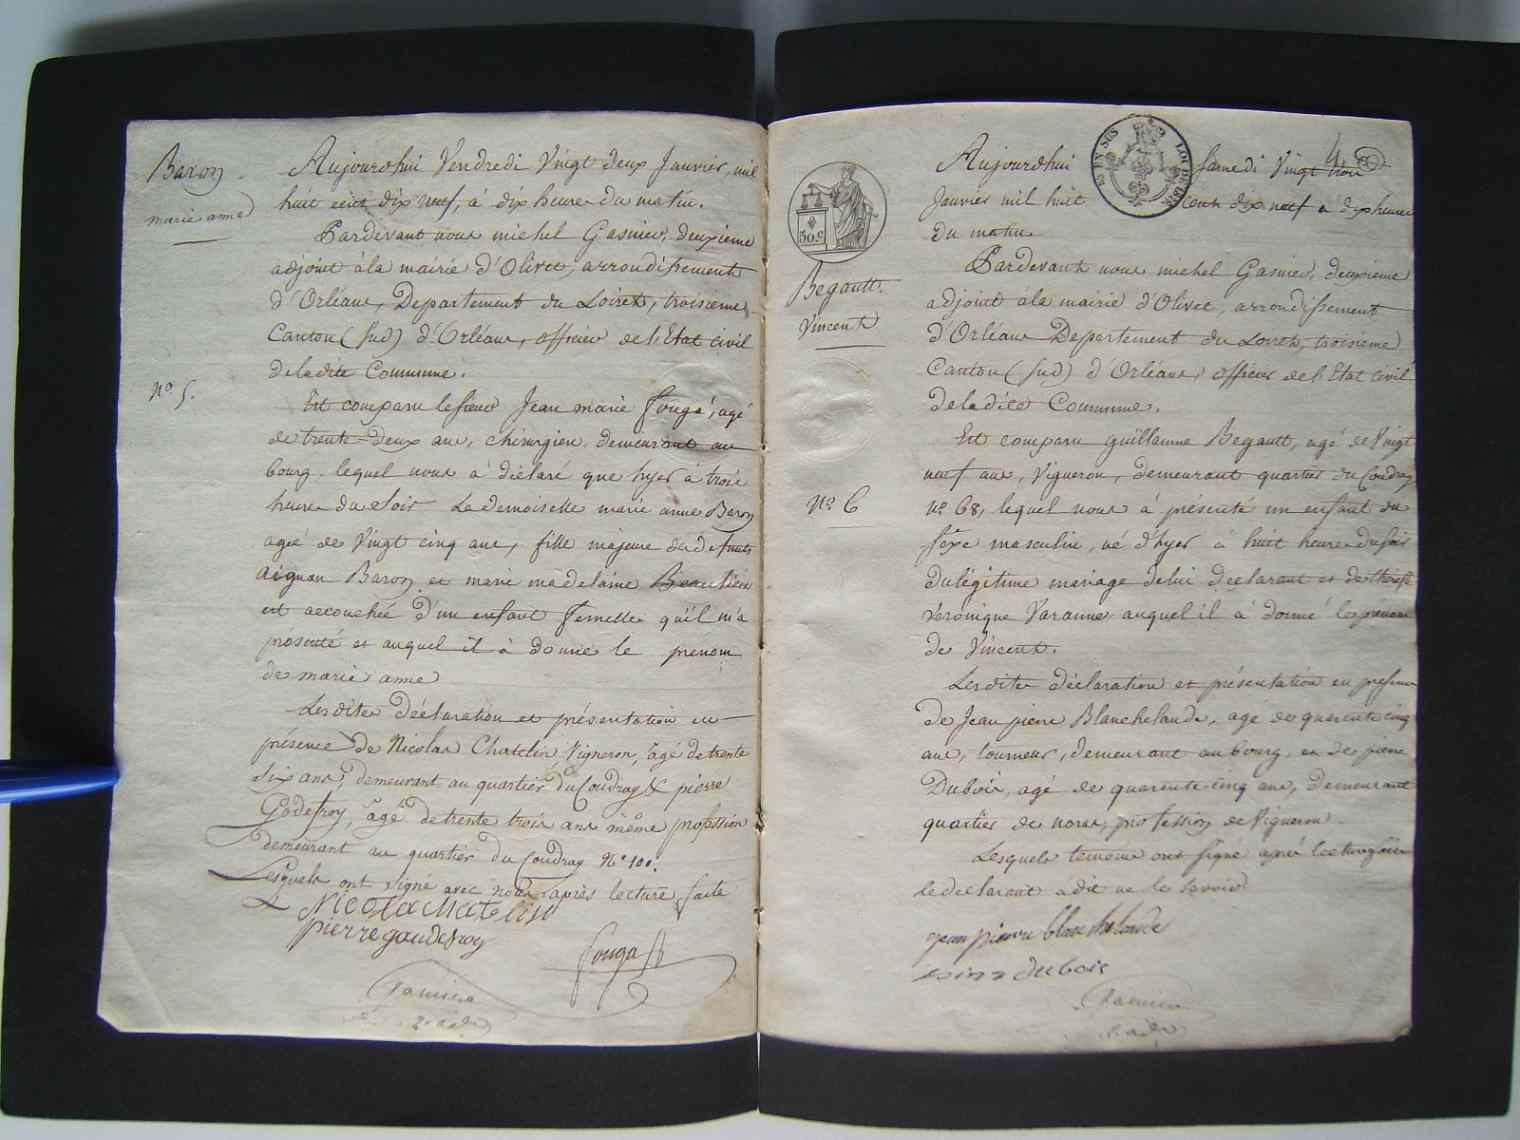 Baron
marie anne
Nº 5.
Aujourdhui Vendredi Vingt deux Janvier, mil
huit cent dix neuf, à dix heures du matin.
Pardevant nous michel Gasnier, deuxieme
adjoint àla mairie d'Olivet, arrondissement
d'Orléans, Departement du Loiret, troisieme
Canton (Sud) d'Orléans, officier de l'Etat civil
deladite Commune.
Est comparu le sieur Jean marie fougé, agé
de trente-deux ans, chirurgien, demeurant au
bourg, lequel nous à déclaré que hyer à trois
heures du soir La demoiselle marie anne Baron
agée de Vingt cinq ans, fille majeure de defunts
aignan Baron et marie madelaine Beaulieu
est accouchée d'un enfant femelle qu'il m'a
presenté et auquel il à donné le prenom
de marie anne
Lesdites déclaration et présentation en
présence de Nicolas Chatelin Vigneron, âgé de trente
six ans, demeurant au quartier du Coudray & pierre
Godefroy, âgé de trente trois ans même profession
demeurant au quartier du Coudray Nº 100.
Lesquels ont signé avec nous après lecture faite
pierre gaudefroy
Gasnier
Aujourdhui Samedi Vingt trois
Janvier mil huit cent dix neuf a dix heures
du matin
EN SUS
LOI DE 1816
50 c
Begault.
Vincent
Nº 6
Pardevant nous michel Gasnier, deuxieme
adjoint àla mairie d'Olivet, arrondissement
d'Orléans Departement du Loiret, troisieme
Canton (Sud) d'Orléans, officier de l'Etat civil
deladite Commune.
Est comparu guillaume Begault, agé de Vingt
neuf ans, Vigneron, demeurant quartier du Coudray
Nº 68, lequel nous à présenté un enfant du
sexe masculin, né d'hyer à huit heures du soir
du légitime mariage de lui declarant et de thérese
Veronique Varannes auquel il à donné le prenom
de Vincent.
Lesdites déclaration et présentation en presence
de Jean pierre Blanchelande, agé de quarente cinq
ans, tourneur, demeurant au bourg, et de pierre
Dubois, agé de quarente-cinq ans, demeurant
quartier de noras, profession de Vigneron.
Lesquels temoins ont signé après lecture
le declarant à dit ne le savoir
jean pierre blanchelande
dubois
Gasnier